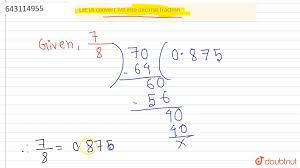 643114955
Let us convert 7/8 into decimal fraction
Given, 7/8 ) 70 ( 0.875
- 64
60
- 56
40
40
x
∴ 7/8 = 0.875
doubtnut